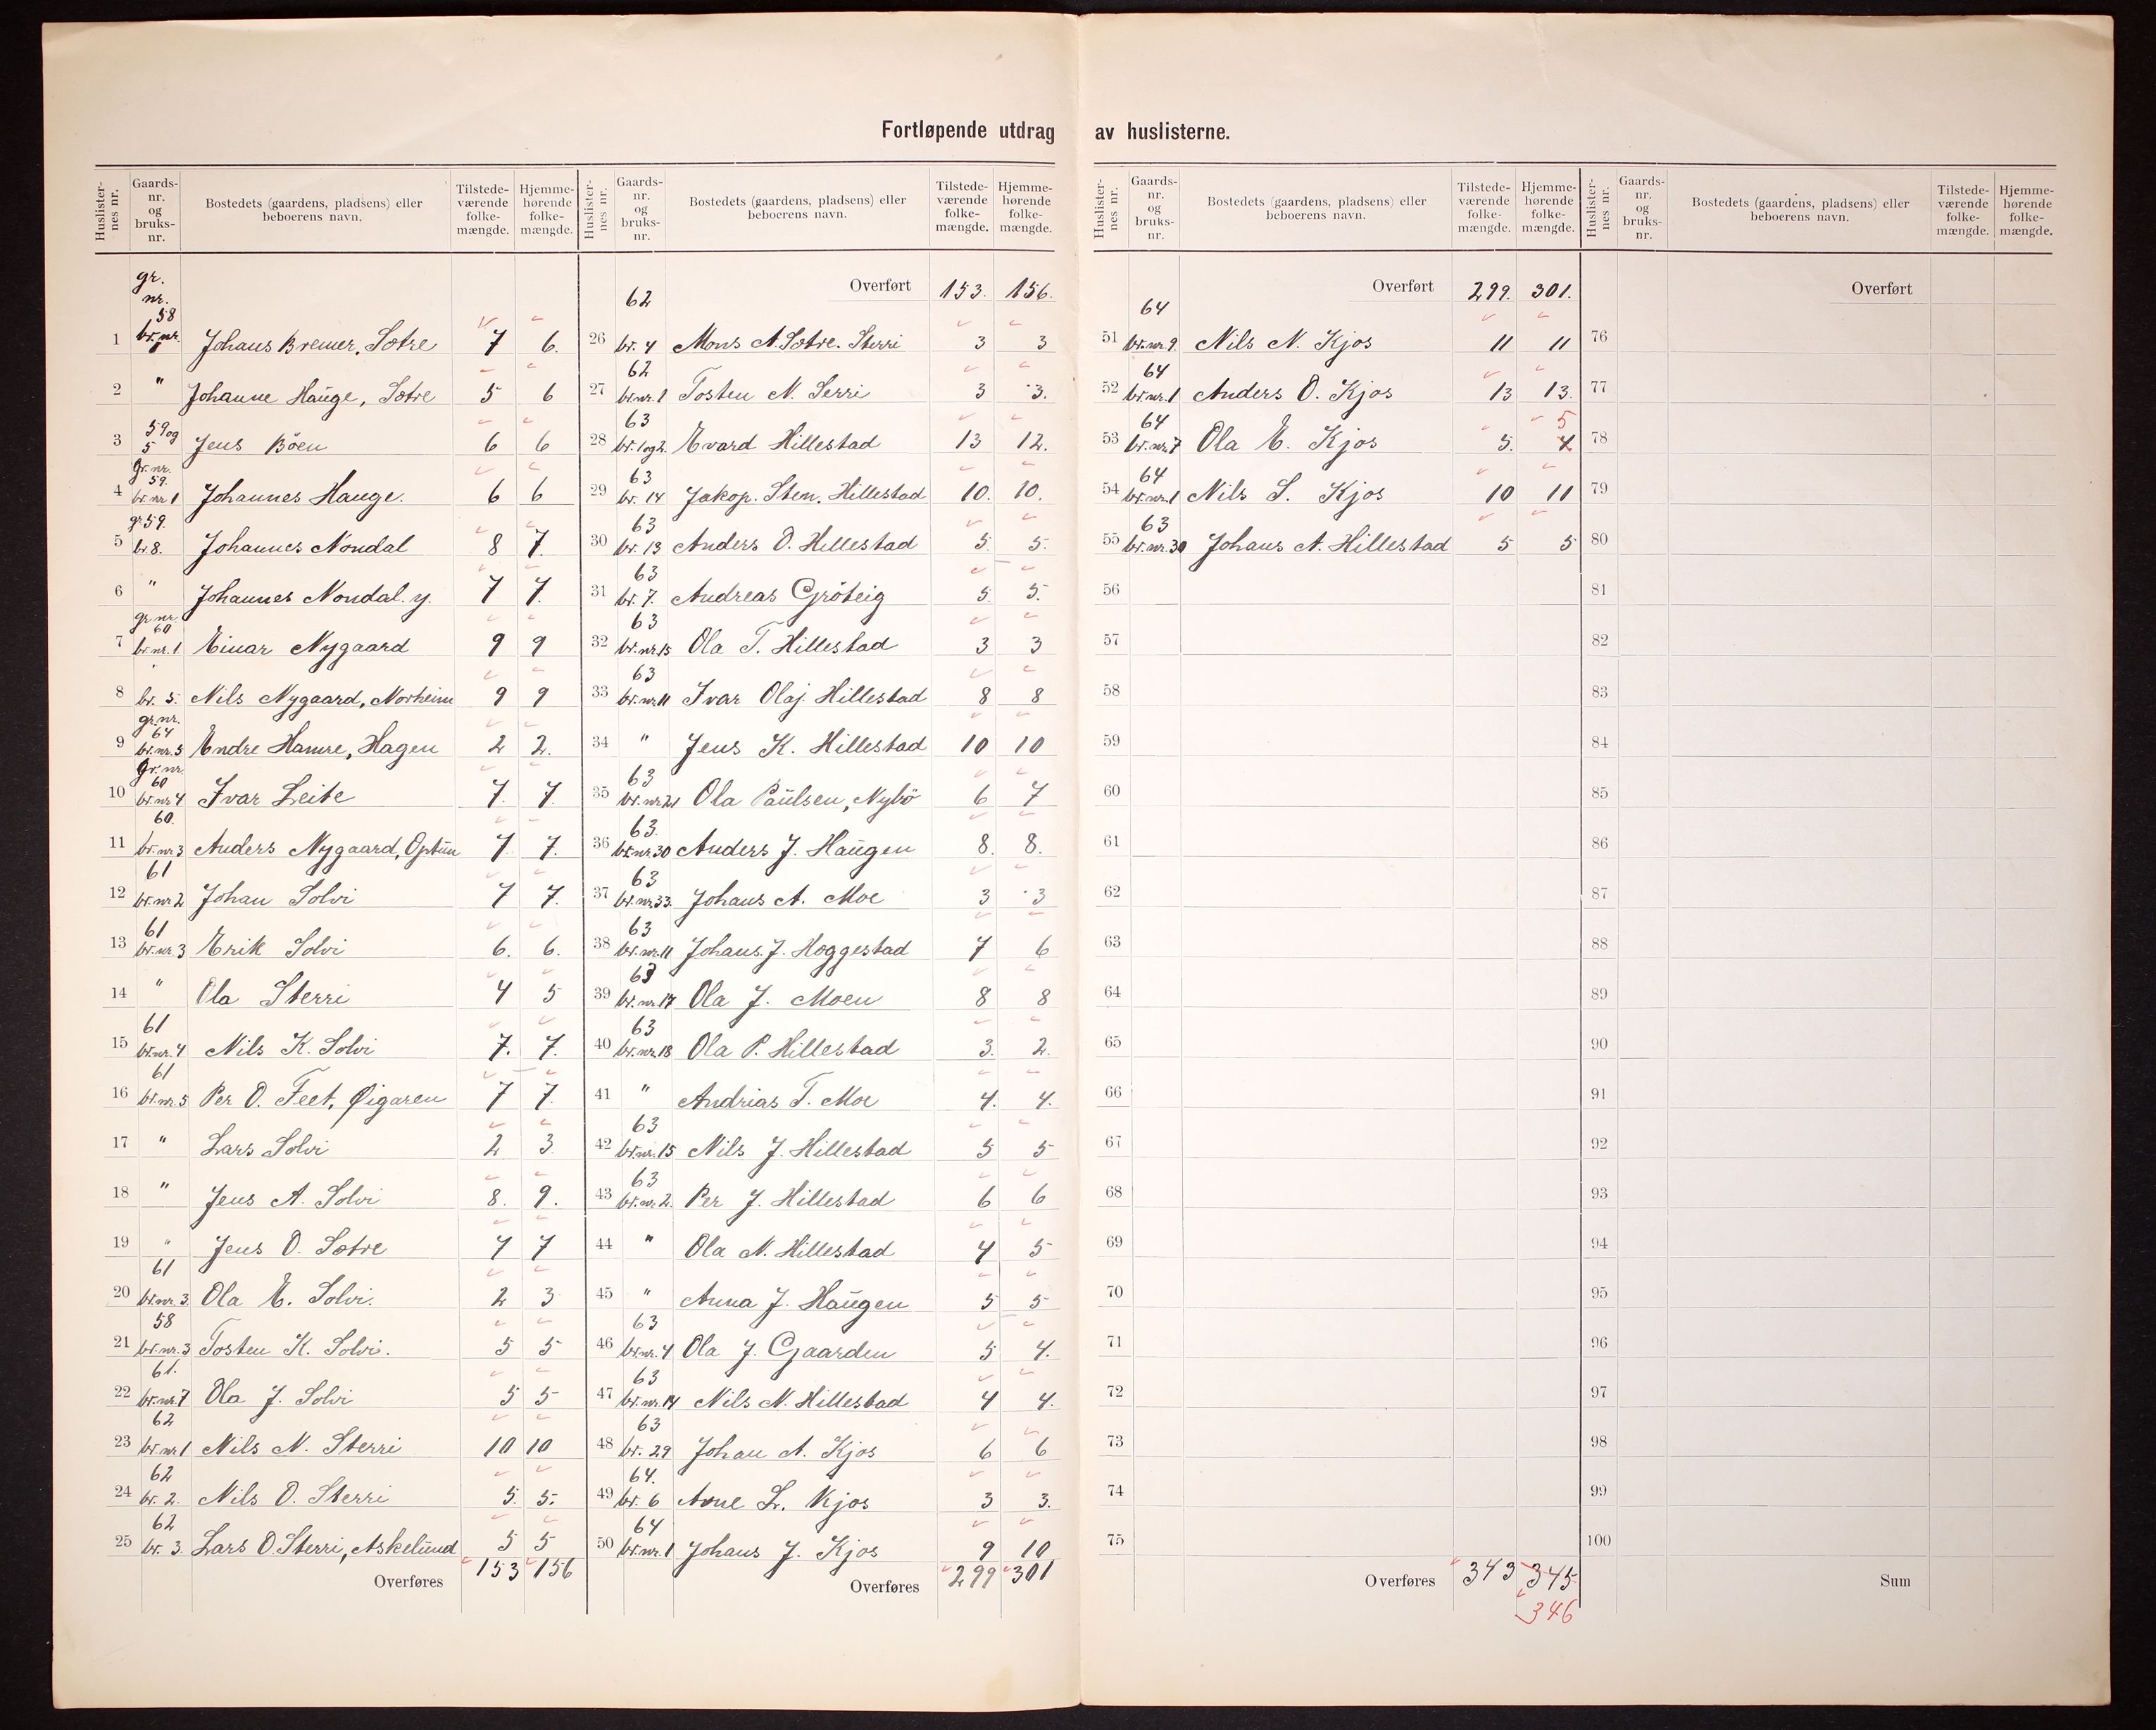 Fortløpende utdrag av huslisterne.
Huslister-nes nr. Gaards-nr. og bruks-nr. Bostedets (gaardens, pladsens) eller beboerens navn. Tilstede-værende folke-mængde. Hjemme-hørende folke-mængde.
gr. nr. 58
1 br. nr. Johans Bremer, Sætre 7 6.
2 " Johanne Hauge, Sætre 5 6
3 59 og 5 Jens Böen 6 6
4 gr. nr. 59. br. nr 1 Johannes Hauge. 6 6
5 gr 59. br 8. Johannes Nondal 8 7.
6 " Johannes Nondal. y. 7 7.
7 gr. nr. 60 br. nr. 1 Einar Nygaard 9 9
8 " br. 5. Nils Nygaard, Norheim 9 9
9 gr. nr. 64 br. nr. 5 Endre Hamre, Hagen 2 2.
10 gr. nr. 60 br. nr 4 Ivar Leite 7. 7.
11 60. br. nr 3 Anders Nygaard, Optun 7. 7.
12 61 br. nr 2 Johan Solvi 7 7.
13 61 br. nr. 3 Erik Solvi 6. 6.
14 " Ola Sterri 4 5
15 61 br. nr. 4 Nils K. Solvi 7. 7.
16 61 br. nr. 5 Per O. Feet, Øigaren 7 7.
17 " Lars Solvi 2 3.
18 " Jens A. Solvi 8. 9.
19 " Jens O. Sætre 7 7
20 61 br. nr. 3. Ola E. Solvi. 2 3
21 58 br. nr. 3 Tosten K. Solvi. 5 5
22 61. br. nr. 7 Ola J. Solvi 5 5
23 62 br. nr 1 Nils N. Sterri 10 10
24 62 br. 2. Nils O. Sterri 5. 5.
25 62 br. 3. Lars O. Sterri, Askelund 5 5
Overføres 153 156
Huslister-nes nr. Gaards-nr. og bruks-nr. Bostedets (gaardens, pladsens) eller beboerens navn. Tilstede-værende folke-mængde. Hjemme-hørende folke-mængde.
Overført 153. 156.
26 62 br. 4 Mons A. Sætre. Sterri 3 3
27 62 br. nr. 1 Tosten N. Serri 3 3.
28 63 br. 1 og 2. Evard Hillestad 13 12.
29 63 br. 14 Jakop. Sten. Hillestad 10. 10.
30 63 br. 13 Anders O. Hillestad 5. 5.
31 63 br. 7. Andreas Gröteig 5. 5.
32 63 br. nr. 15 Ola T. Hillestad 3 3
33 63 br. nr. 11 Ivar Olaj. Hillestad 8 8
34 " Jens K. Hillestad 10 10
35 63 br. nr 21 Ola Paulsen, Nybö 6 7
36 63. br. nr 30 Anders J. Haugen 8. 8.
37 63 br. nr. 33. Johans A. Moe 3 3
38 63 br. nr. 11 Johans. J. Hoggestad 7 6
39 63 br. nr. 17 Ola J. Moen 8 8
40 63 br. nr. 18 Ola P. Hillestad 3. 2.
41 " Andrias T. Moe 4. 4.
42 63 br. nr. 15 Nils J. Hillestad 5 5
43 63 br. nr. 2. Per J. Hillestad 6 6
44 " Ola N. Hillestad 4 5
45 " Anna J. Haugen 5 5
46 63 br. nr. 4 Ola J. Gaarden 5 4.
47 63 br. nr. 14 Nils N. Hillestad 4 4.
48 63 br. 29 Johan A. Kjos 6 6
49 64. br. 6 Arne L. Kjos 3 3.
50 64 br. nr. 1 Johans J. Kjos 9 10
Overføres 299 301
Huslister-nes nr. Gaards-nr. og bruks-nr. Bostedets (gaardens, pladsens) eller beboerens navn. Tilstede-værende folke-mængde. Hjemme-hørende folke-mængde.
Overført 299. 301.
51 64 br. nr. 9 Nils N. Kjos 11 11
52 64 br. nr. 1 Anders O. Kjos 13 13.
53 64 br. nr. 7 Ola E. Kjos 5. 4 5
54 64 br. nr. 1 Nils S. Kjos 10 11
55 63 br. nr. 30 Johans A. Hillestad 5 5
56
57
58
59
60
61
62
63
64
65
66
67
68
69
70
71
72
73
74
75
Overføres 343 345
346
Huslister-nes nr. Gaards-nr. og bruks-nr. Bostedets (gaardens, pladsens) eller beboerens navn. Tilstede-værende folke-mængde. Hjemme-hørende folke-mængde.
Overført
76
77
78
79
80
81
82
83
84
85
86
87
88
89
90
91
92
93
94
95
96
97
98
99
100
Sum